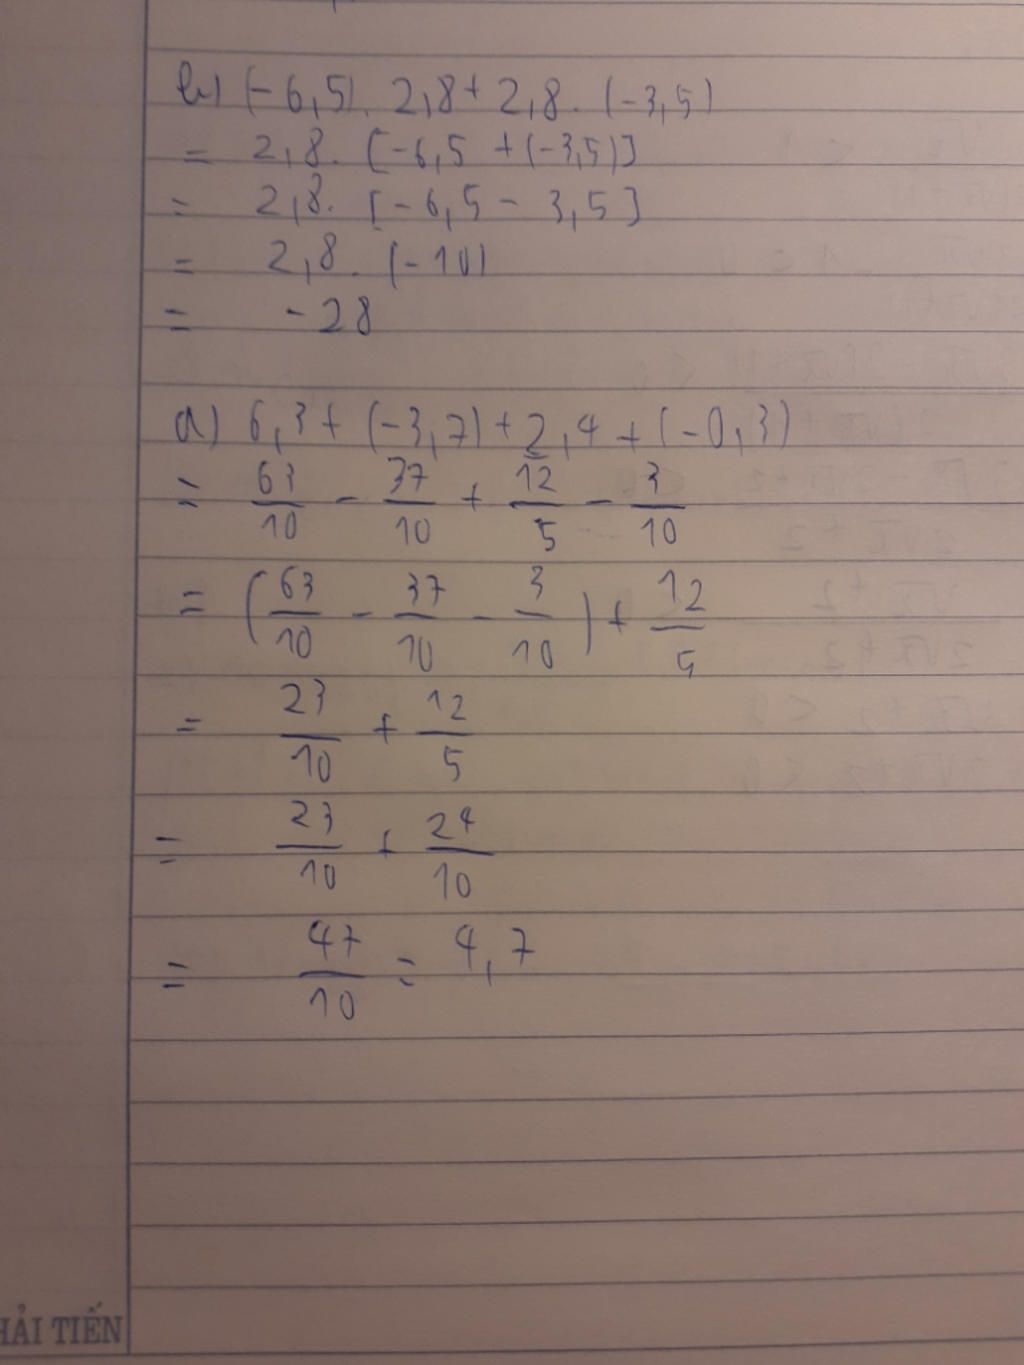 b) (-6,5). 2,8 + 2,8. (-3,5)
= 2,8. [-6,5 + (-3,5)]
= 2,8. [-6,5 - 3,5]
= 2,8. (-10)
= -28
a) 6,3 + (-3,7) + 2,4 + (-0,3)
= 63/10 - 37/10 + 12/5 - 3/10
= (63/10 - 37/10 - 3/10) + 12/5
= 23/10 + 12/5
= 23/10 + 24/10
= 47/10 = 4,7
HẢI TIẾN